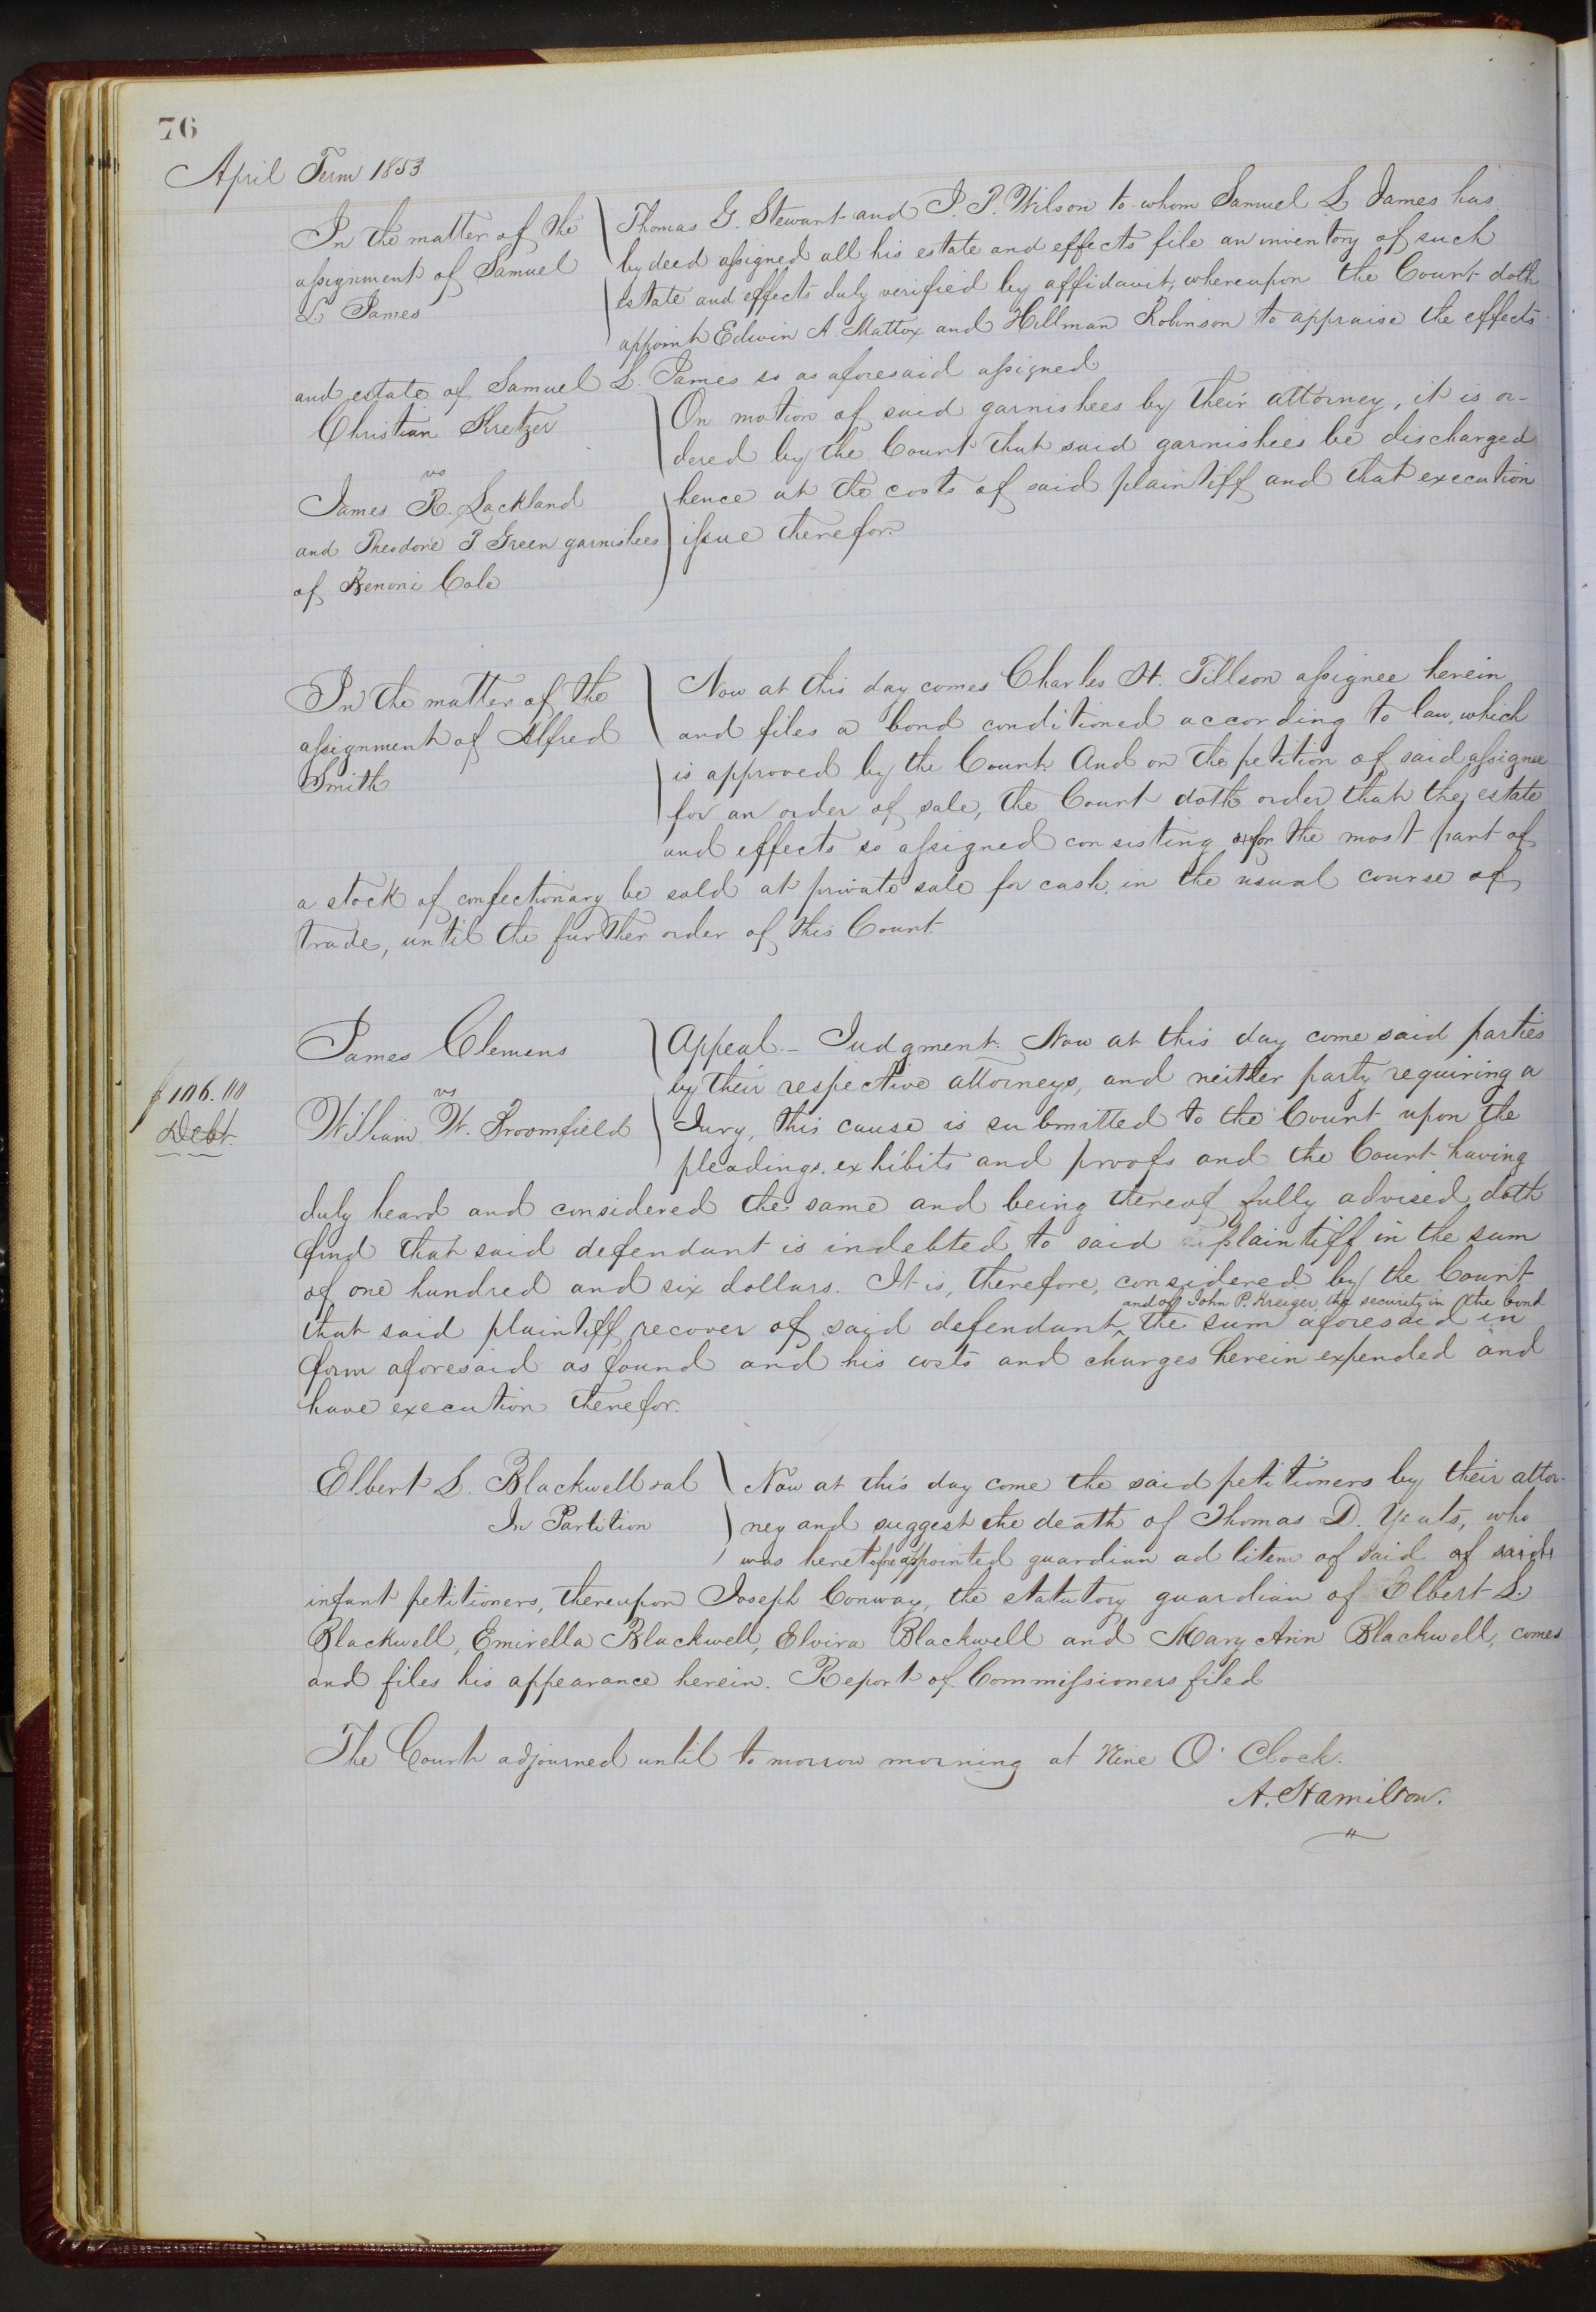 76
April Term 1853
In the matter of the
assignment of Samuel
L James
Thomas G. Stewart and J. P. Wilson to whom Samuel L James has
by deed assigned all his estate and effects file an inventory of such
estate and effects duly verified by affidavit, whereupon the Court doth
appoint Edwin A. Mattox and Hillman Robinson to appraise the effects
and estate of Samuel L. James so as aforesaid assigned
Christian Kretzer
vs
James R. Lackland
and Theodore P Green garnishees
of Benoni Cole
On motion of said garnishees by their attorney, it is or-
dered by the Court that said garnishees be discharged
hence at the costs of said plaintiff and that execution
issue therefor.
In the matter of the
assignment of Alfred
Smith
Now at this day comes Charles H. Tillson assignee herein
and files a bond conditioned according to law, which
is approved by the Court. And on the petition of said assignee
for an order of sale, the Court doth order that the estate
and effects so assigned consisting for the most part of
a stock of confectionary be sold at private sale for cash in the usual course of
trade, until the further order of this Court.
$106.00
Debt.
James Clemens
vs
William W. Broomfield
Appeal - Judgment. Now at this day come said parties
by their respective attorneys, and neither party requiring a
Jury, this cause is submitted to the Court upon the
pleadings, exhibits and proofs and the Court having
duly heard and considered the same and being thereof fully advised doth
find that said defendant is indebted to said plaintiff in the sum
of one hundred and six dollars. It is, therefore, considered by the Court
and of John P. Kreiger, the security in the bond
that said plaintiff recover of said defendant ^ the sum aforesaid in
form aforesaid as found and his costs and charges herein expended and
have execution therefor.
Elbert L. Blackwell et al
In Partition
Now at this day come the said petitioners by their attor-
ney and suggest the death of Thomas D. Yeats, who
was heretofore appointed guardian ad litem of said of said
infant petitioners, thereupon Joseph Conway, the statutory guardian of Elbert L.
Blackwell, Emirella Blackwell, Elvira Blackwell and Mary Ann Blackwell, comes
and files his appearance herein. Report of Commissioners filed
The Court adjourned until to morrow morning at Nine O' Clock.
A. Hamilton.